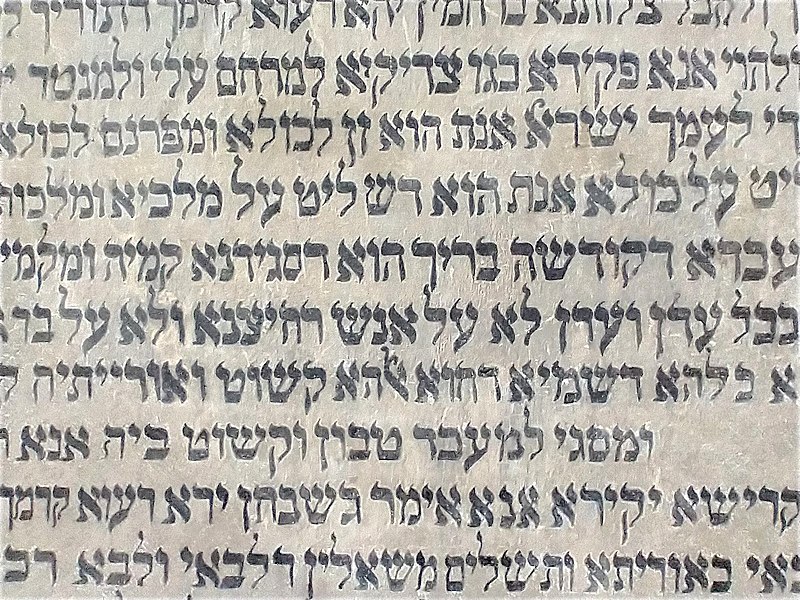 ולקבל צלותנא
ולהוי אנא פקידא בגו צדיקיא למרחם עלי ולמנטר
די לעמך ישראל אנת הוא זן לכולא ומפרנס לכולא
ליט על כולא אנת הוא דשליט על מלכיא ומלכות
עבדא דקודשה בריך הוא דסגידנא קמיה ומקמי
בכל עדן ועדן לא על אנש רחיצנא ולא על בר
א בלהא דשמיא דהוא אלהא קשוט ואורייתיה ק
ומסגי למעבד טבון וקשוט ביה אנא ר
קדישא יקירא אנא אימר תשבחן יהא רעוא קדמך
באי באוריתא ותשלים משאלין דלבאי ולבא דכ